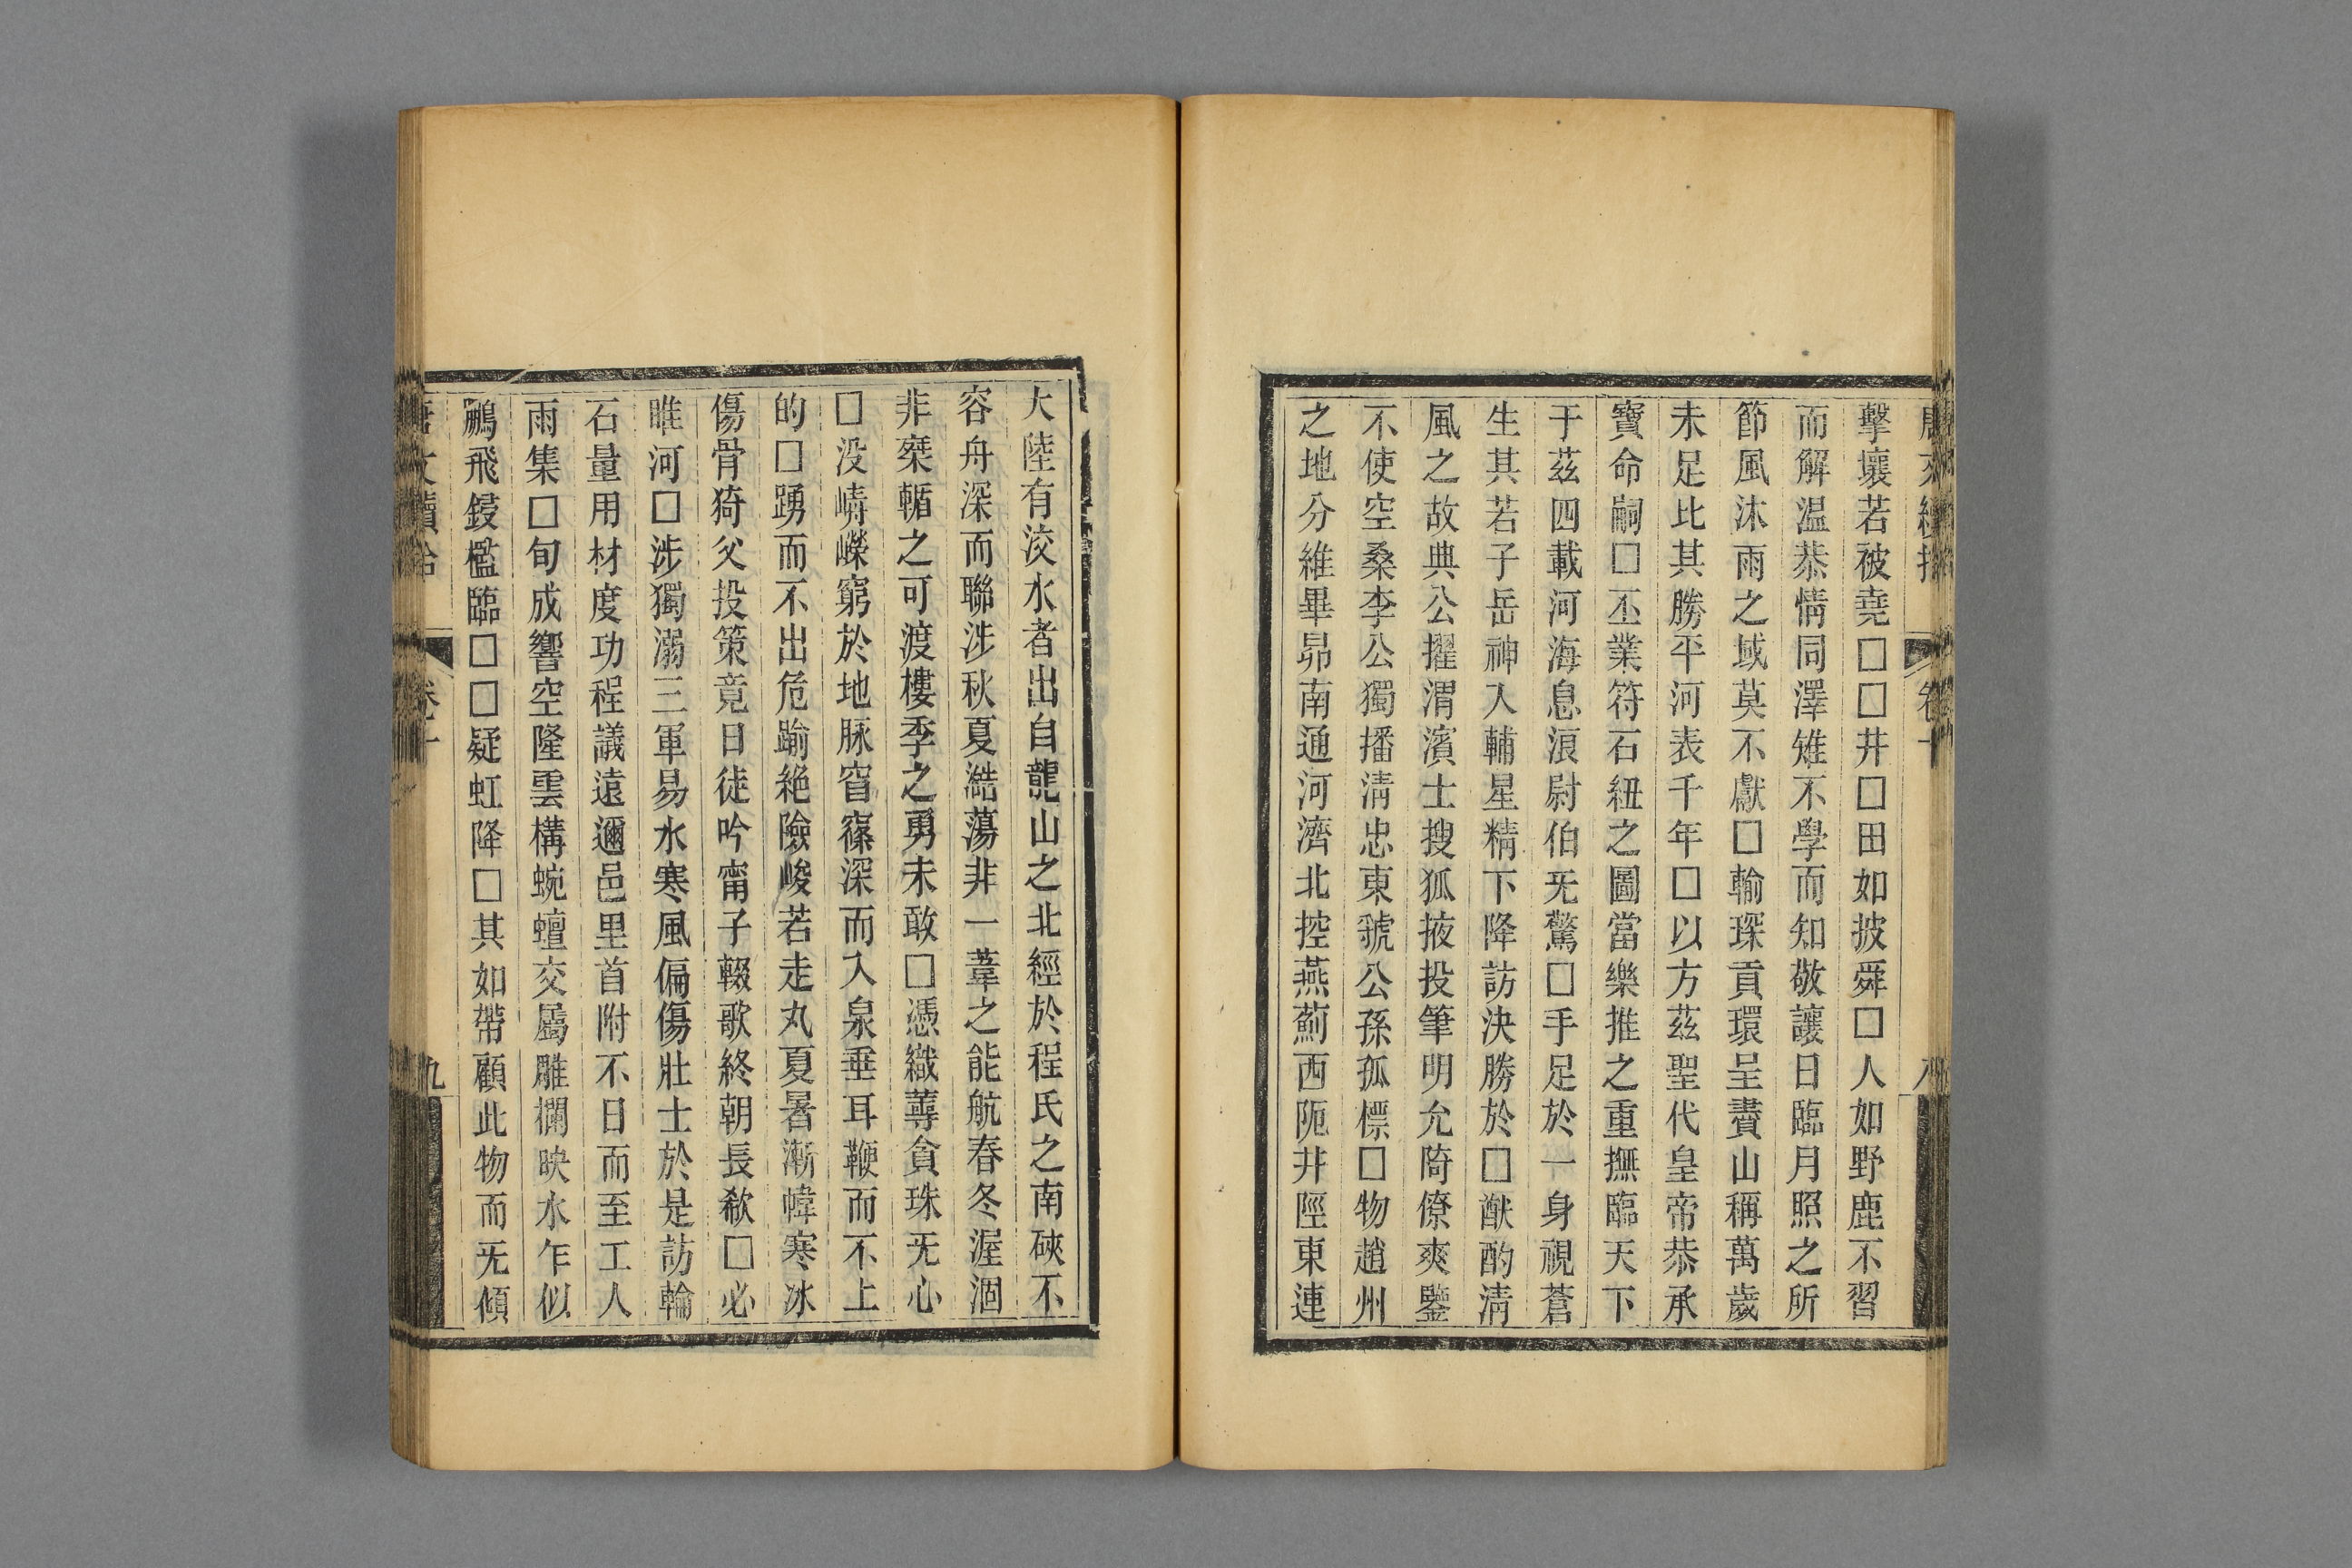 擊壤若被堯□□井□田如披舜□人如野鹿不習
而解温恭情同澤雉不學而知敬讓日臨月照之所
節風沐雨之域莫不獻□輸琛貢環呈賮山稱萬歲
未足比其勝平河表千年□以方茲聖代皇帝恭承
寶命嗣□丕業符石紐之圖當樂推之重撫臨天下
于茲四載河海息浪尉伯旡驚□手足於一身視蒼
生其若子岳神入輔星精下降訪決勝於□猷酌淸
風之故典公擢渭濱士搜狐掖投筆明允陭僚爽鑒
不使空桑李公獨播淸忠東虢公孫孤標□物趙州
之地分維畢昴南通河濟北控燕薊西阨井陘東連
大陸有洨水者出自龍山之北經於程氏之南硤不
容舟深而聯涉秋夏澔蕩非一葦之能航春冬渥涸
非椉輴之可渡樓季之勇未敢□憑織蓴貪珠旡心
□没崝嶸窮於地脉窅篠深而入泉垂耳鞭而不上
的□踴而不出危踰絶險峻若走丸夏暑漸幃寒冰
傷骨猗父投策竟日徒吟甯子輟歌終朝長欷□必
睢河□涉獨溺三軍易水寒風偏傷壯士於是訪輪
石量用材度功程議遠邇邑里首附不日而至工人
雨集□旬成響空隆雲構蜿蟺交屬雕欄映水乍似
鶣飛鋄檻臨□□疑虹降□其如帶顧此物而旡傾
卷十
九